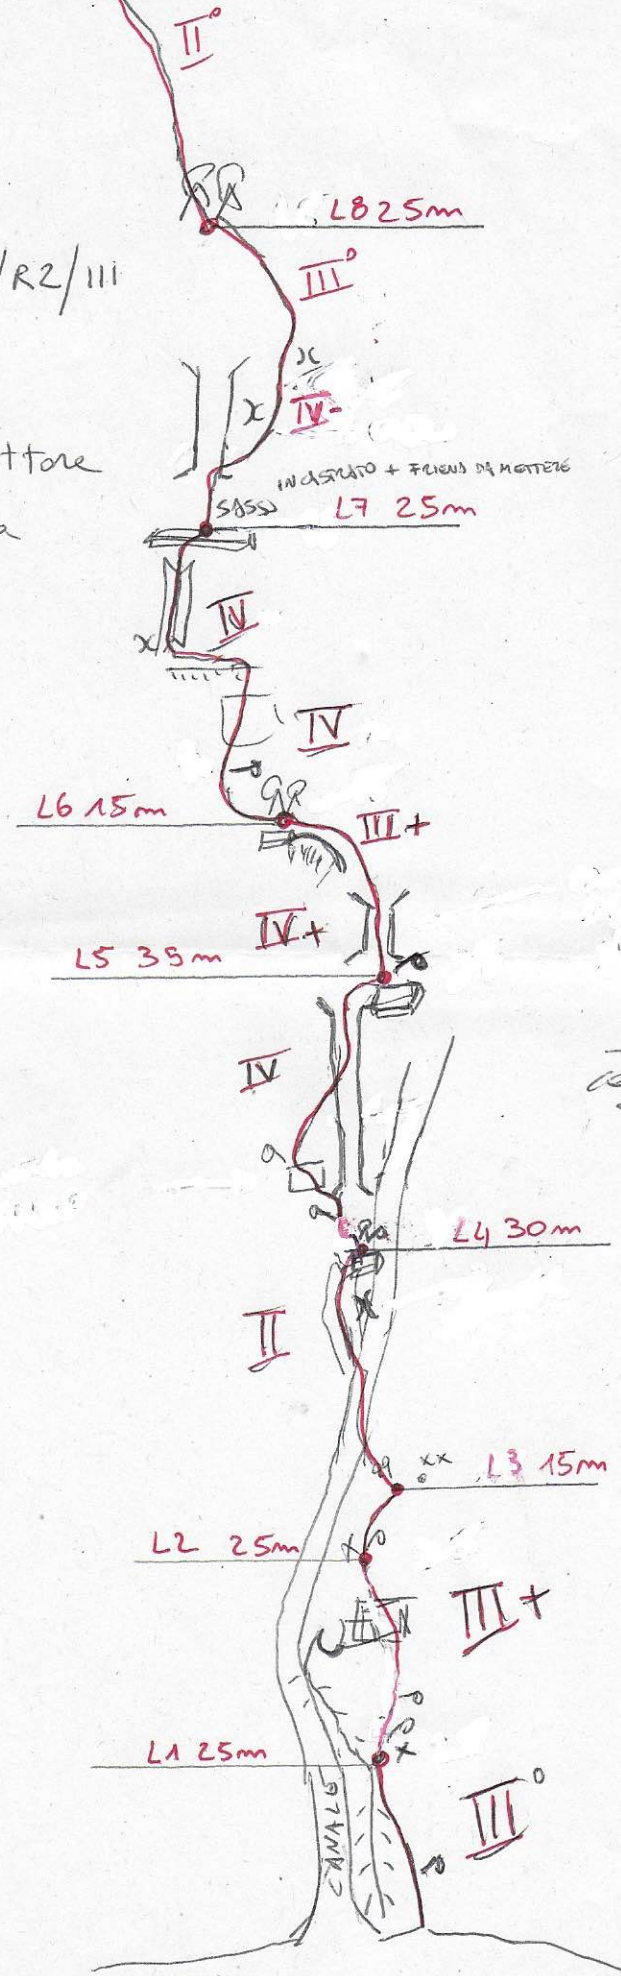 II°
L8 25m
/R2/III
III°
IV-
ttore
INCASTRATO + FRIEND DA METTERE
SASSO
L7 25m
a
IV
IV
L6 15m
III+
IV+
L5 35m
IV
L4 30m
II
xx
L3 15m
L2 25m
III+
L1 25m
III°
CANALE